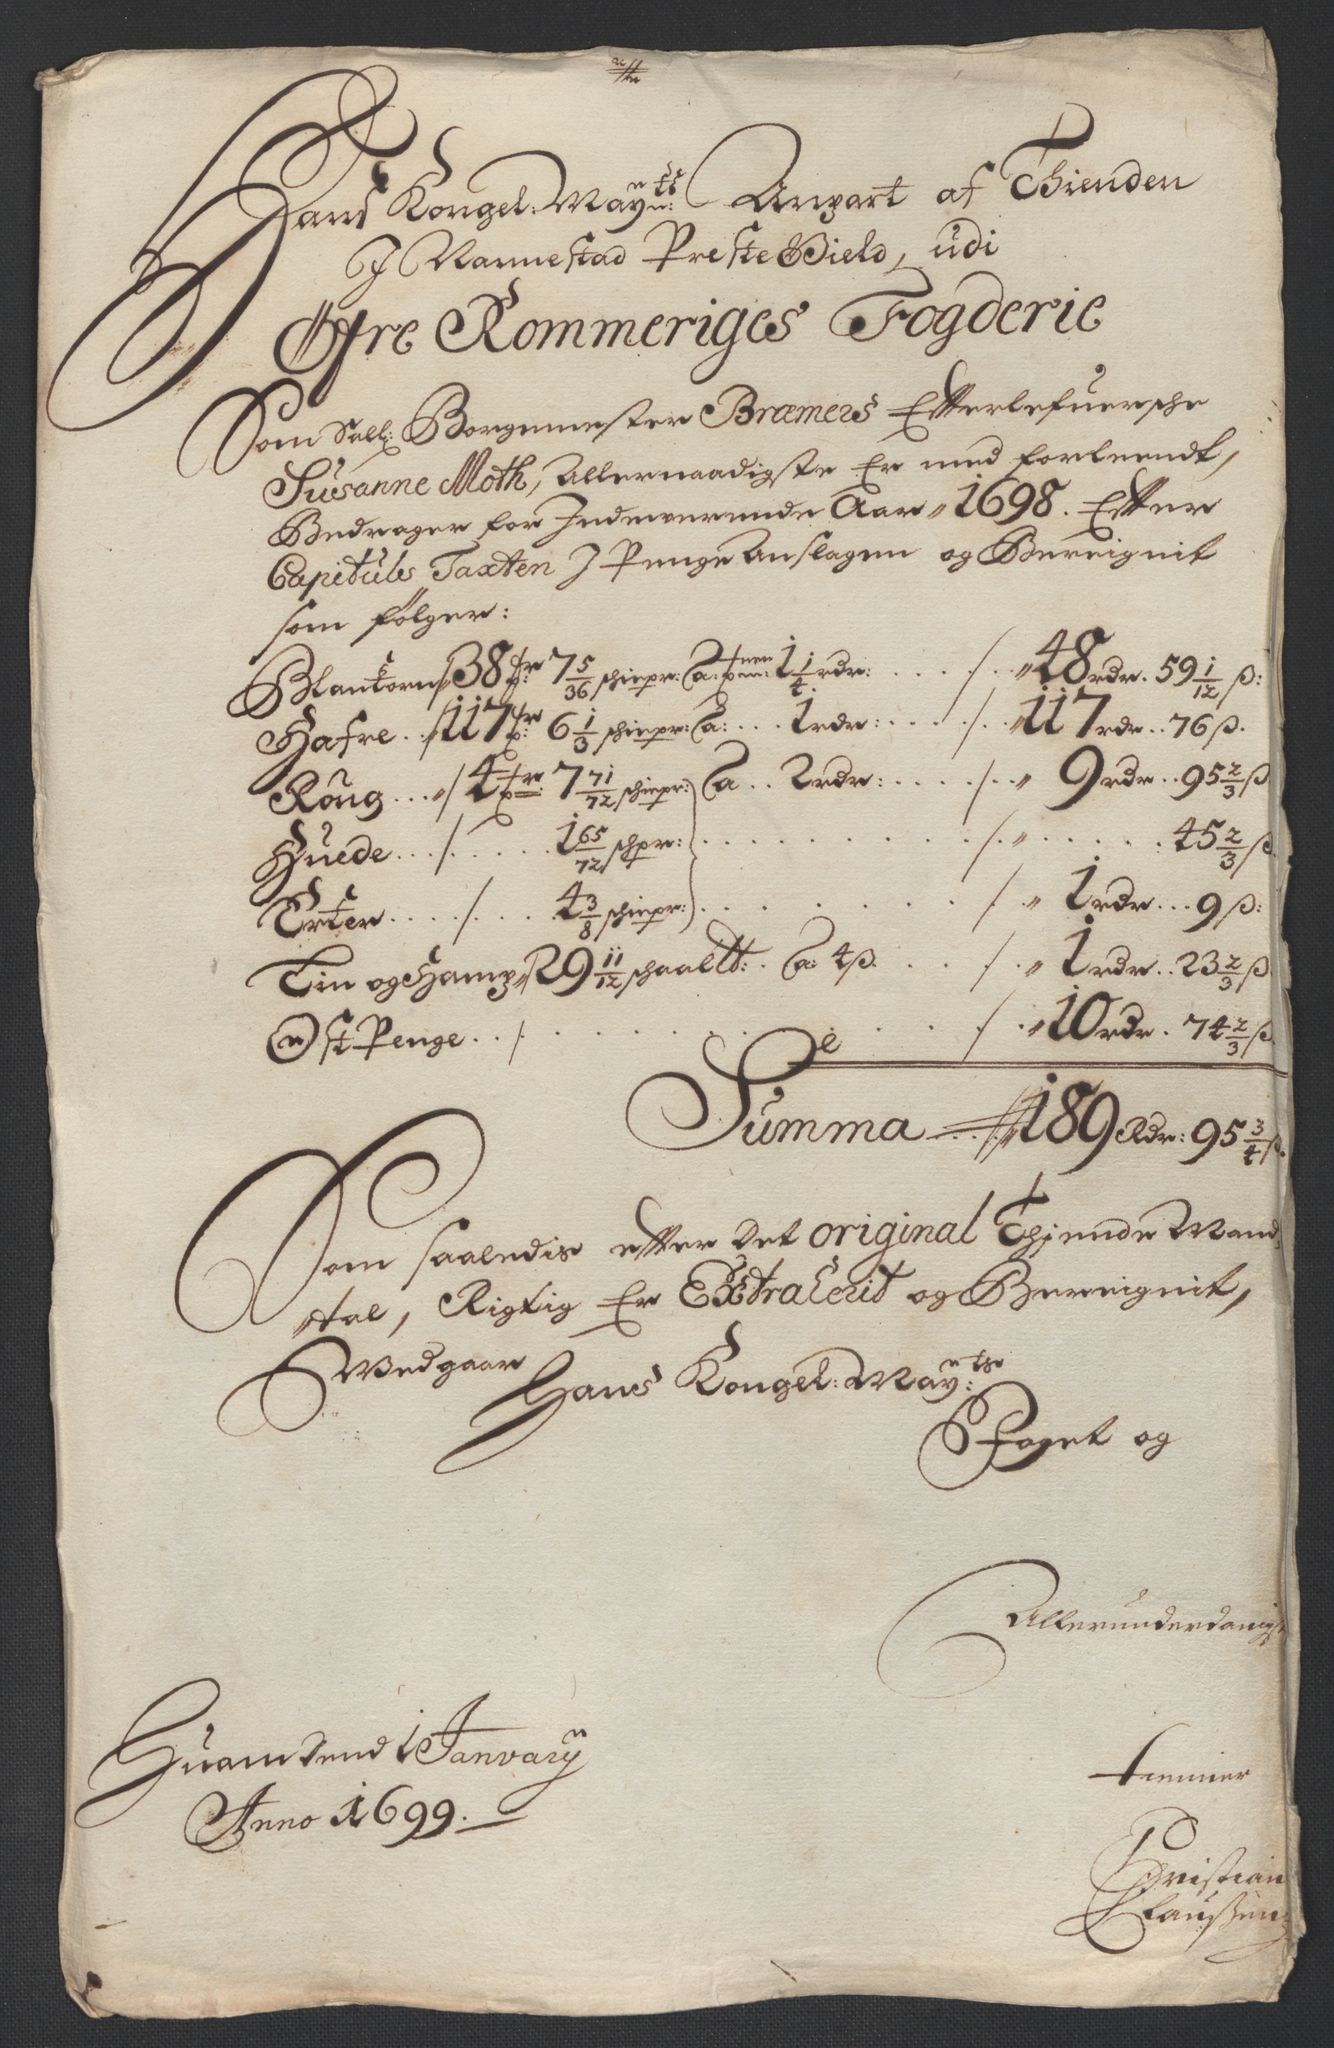 Hans Kongel: May:ts Anpart af Thienden
J Nannestad Preste Gield, udi
Øfre Rommeriges Fogderie
Som Sall: Borgemester Bræmers Efterlefuersche
Susanne Moth, Allernaadigste Er med forleendt,
Bedrager for Indeværende Aar 1698. Efter
Capituls Taxten J Penge Anslagen og Bereignit
som følger:
Blankorn 38 tr: 7 5/36 schiepr: a: tnen: 1 1/4 rdr: . . . . /. 48 rdr. 59 1/12 ß:
Hafre . . 117 tr: 6 1/3 schiepr: a: . . . 1 rdr: . . . . /. . 117 rdr. . 76 ß.
Roug . . . 4 tr: 7 71/72 schiepr: a . . 2 rdr: . . . . . /. . 9 rdr. . 95 2/3 ß
Huede . . . /. . . . . 1 65/72 schpr: . . . . . . . . . . /. . . . . . . 45 2/3 ß.
Erter . . . . /. . . . 4 3/8 schiepr: . . . . . . . . . /. . 1 rdr. . . 9 ß:
Lin og Hamp 29 11/12 schaaltt: . a: 4 ß. . . . /. . 1 rdr. . 23 2/3 ß
Ost Penge . . /. . . . . . . . . . . /. . 10 rdr. 74 2/3 ß
Summa 189 Rdr: 95 3/4 ß.
Som saaledis efter det original Thiende Mand
tal, Rigtig Er Extraherit og Bereignit,
Vedgaar
Hans Kongel: May:ts
Foget og
Allerunderdanigst
Huam dend 1 January
tienner
Anno 1699.
Christian
Claußen